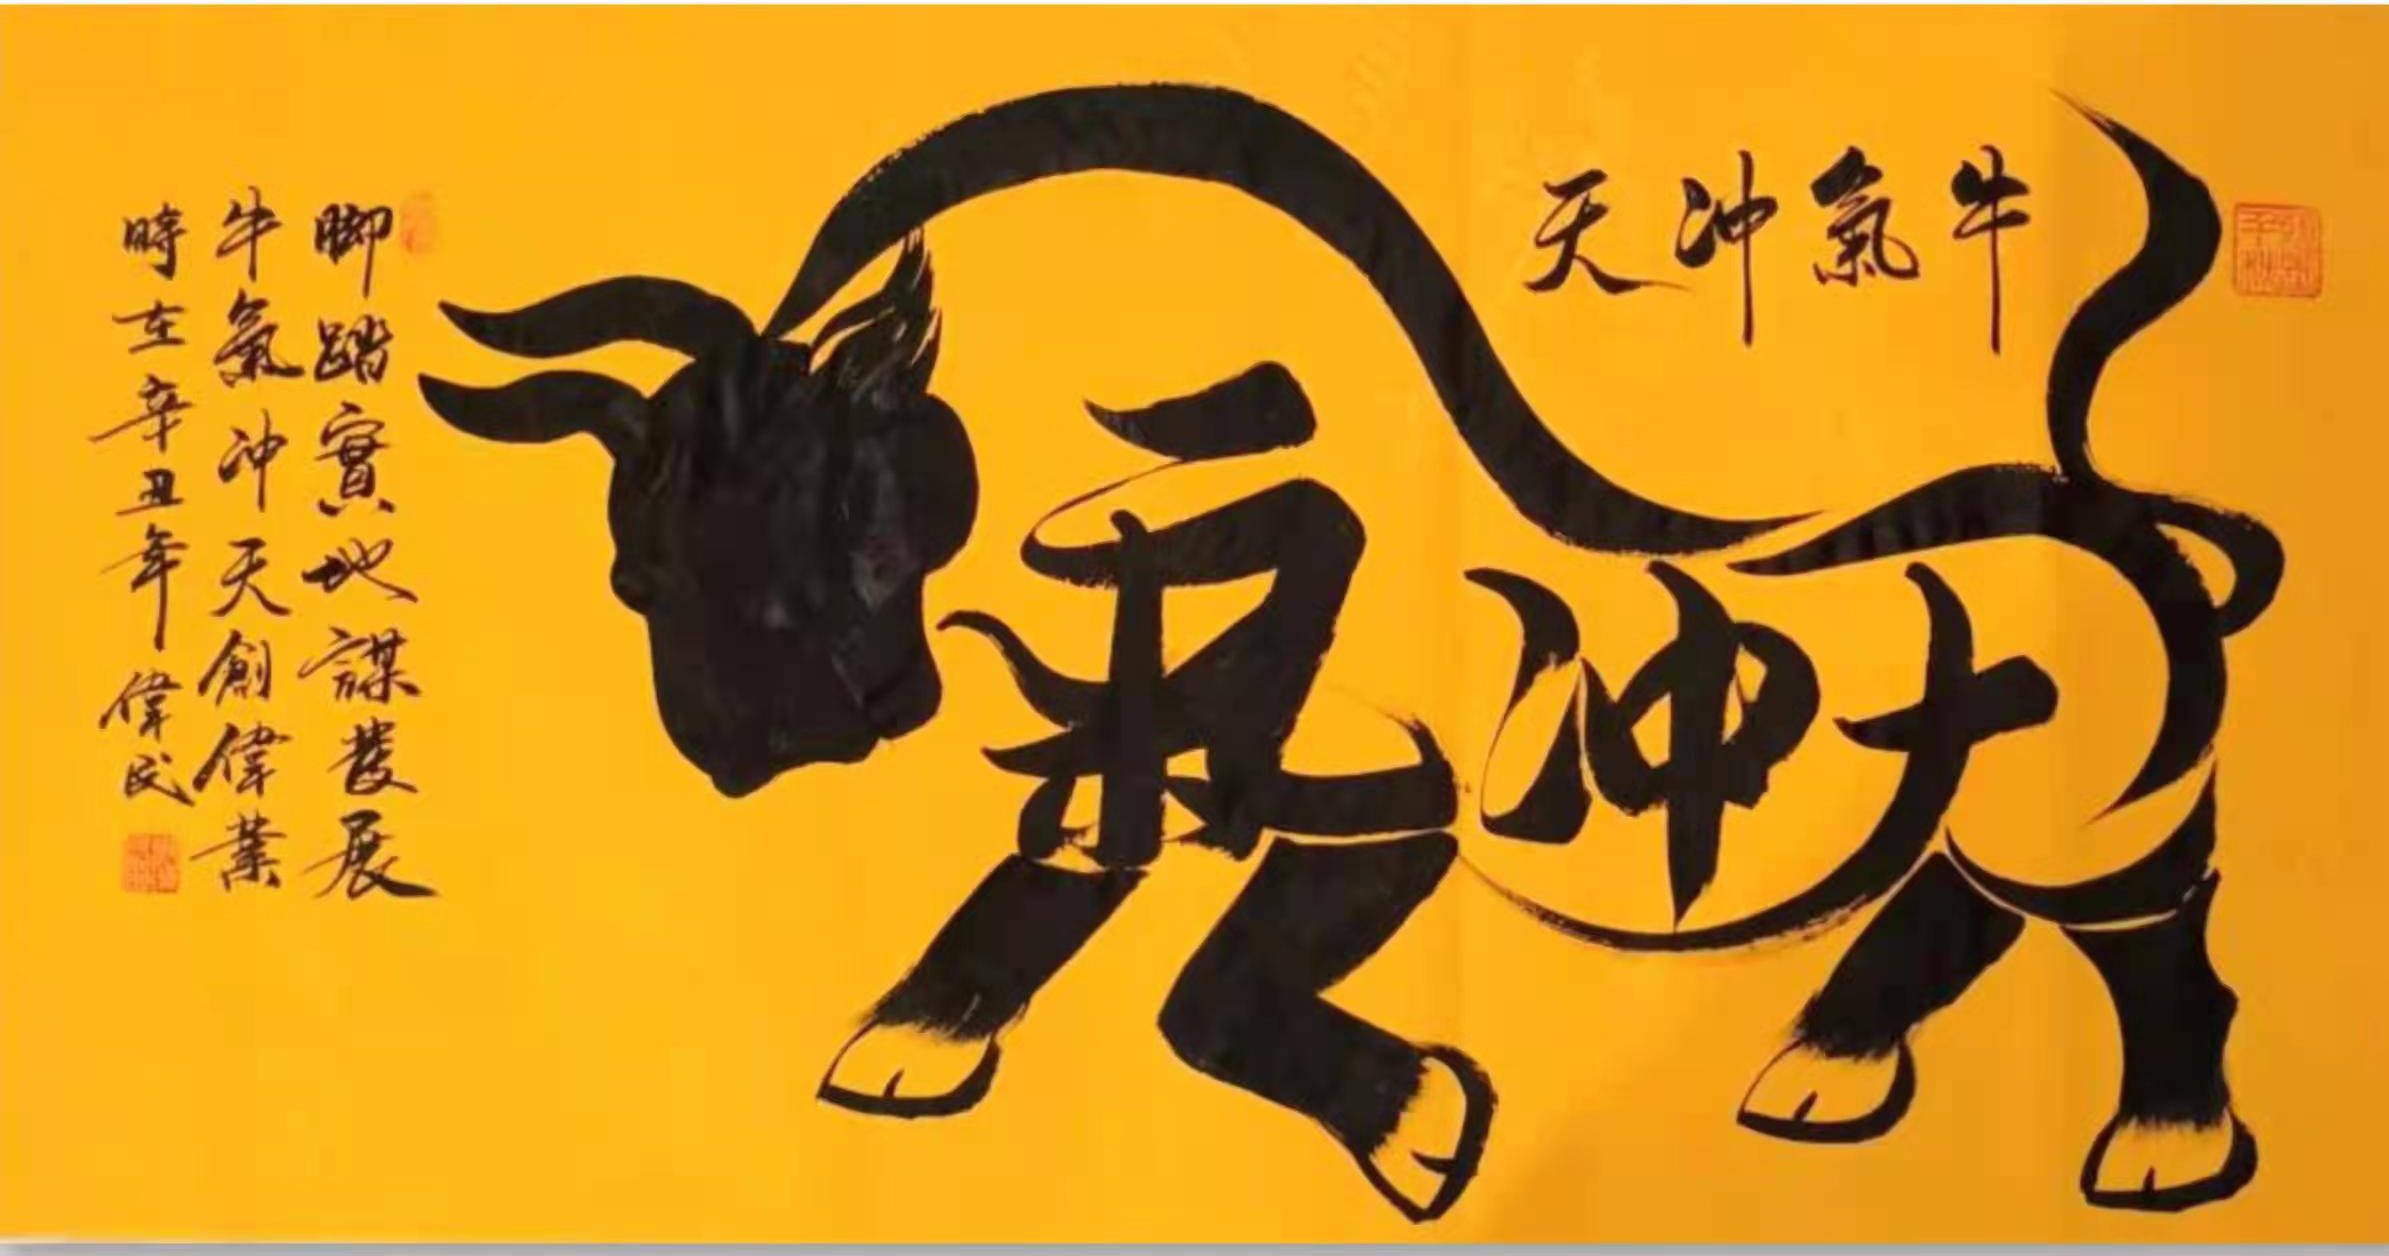 牛氣冲天
氣冲天
脚踏實地謀發展
牛氣冲天創偉業
時在辛丑年 偉民